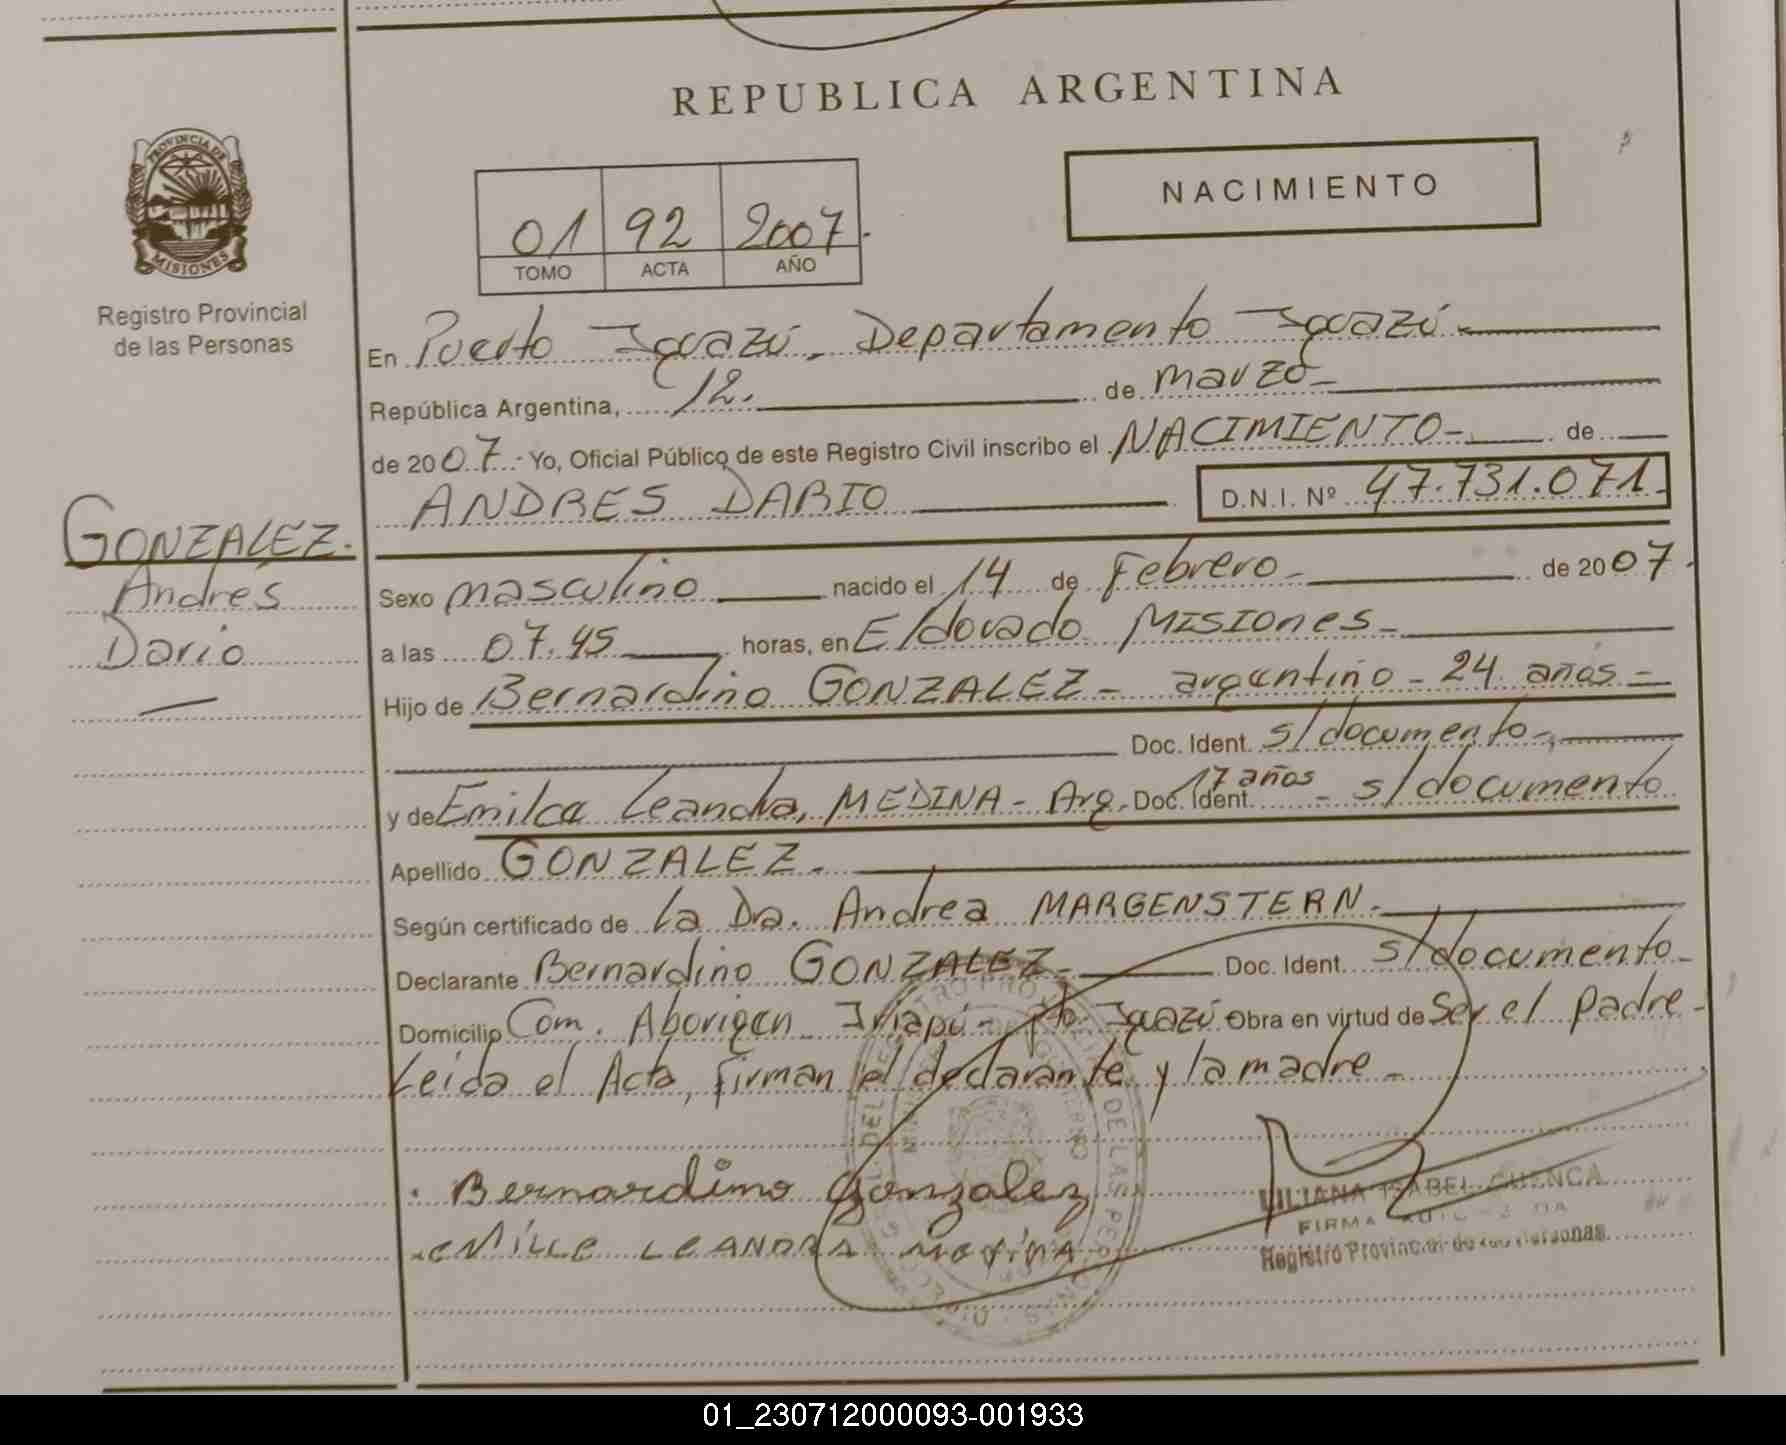 REPUBLICA ARGENTINA
PROVINCIA DE
MISIONES
Registro Provincial
de las Personas
01 92 2007.
TOMO ACTA AÑO
NACIMIENTO
En Puerto Iguazú. Departamento Iguazú
República Argentina, 12. de marzo
de 2007 - Yo, Oficial Público de este Registro Civil inscribo el NACIMIENTO - de
ANDRES DARIO D.N.I. Nº 47.731.071.
GONZALEZ.
Andrés
Dario
Sexo masculino nacido el 14 de Febrero - de 2007
a las 07.45 horas, en Eldorado Misiones -
Hijo de Bernardino GONZALEZ - argentino - 24 años -
Doc. Ident. s/documento -
y de Emilca Leandra, MEDINA - Arg. Doc. Ident. 17 años - s/documento
Apellido GONZALEZ.
Según certificado de la Dra. Andrea MARGENSTERN.
Declarante Bernardino GONZALEZ - Doc. Ident. s/documento -
Domicilio Com. Aborigen Iriapú - Pto. Iguazú Obra en virtud de Ser el padre -
Leida el Acta, firman el declarante y la madre -
Bernardino Gonzalez
LEANDRA
LILIANA ISABEL CUENCA
FIRMA
Registro Provincial de las Personas
01_230712000093-001933